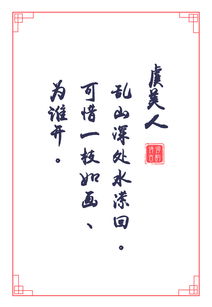 虞美人
乱山深处水潆回。
可惜一枝如画、
为谁开。